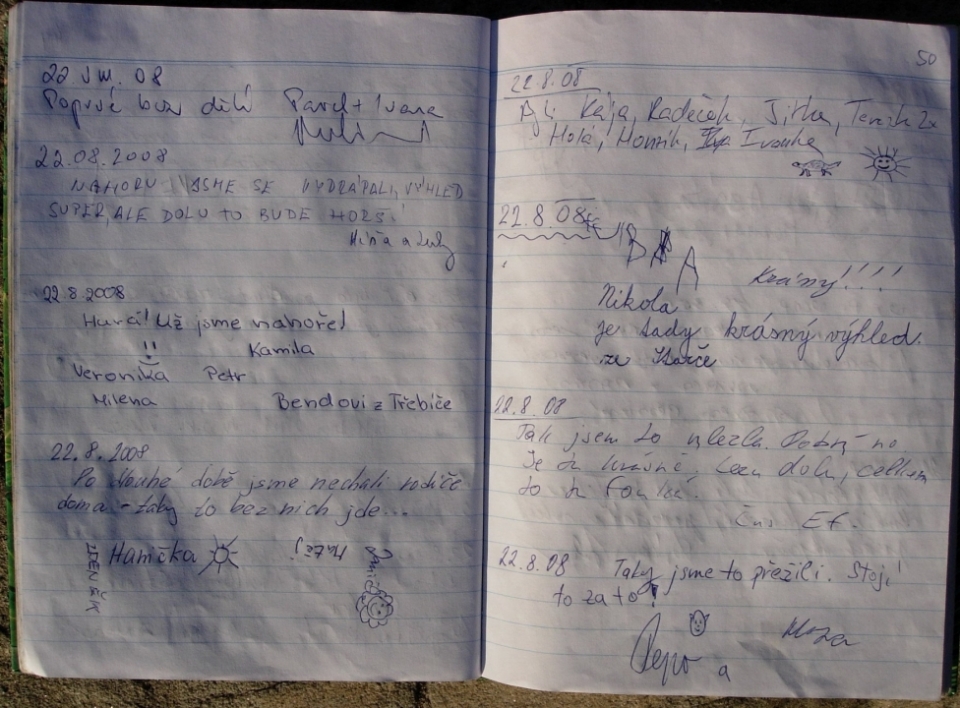 22. VIII. 08
Poprvé bez dětí Pavel + Ivana
22.08.2008
NAHORU JSME SE VYDRÁPALI, VÝHLED
SUPER, ALE DOLU TO BUDE HORŠÍ
a
22.8.2008
Hurá! Už jsme nahoře!
!!
Kamila
Veronika Petr
Milena Bendovi z Třebíče
22.8.2008
Po dlouhé době jsme nechali rodiče
doma - taky to bez nich jde...
ZDENĚK Hanička Matěj
50
22.8.08
Kája, Radeček, Jitka, Terezk 2x
Holá, Honzík, Ivanka
22.8.08
Krásný!!!!
Nikola
je tady krásný výhled
22.8.08
Tak jsem to vylezla. Dobrý no
Je to krásné. Lezu dolu, celkem
to tu fouká.
Čus Ef.
22.8.08 Taky jsme to přežili. Stojí
to za to!
Pepa a